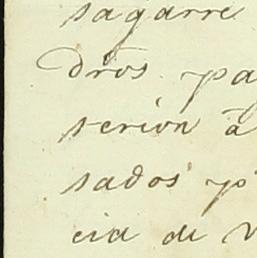 sagarre
dros. pa
serion â
sados p
cia de v